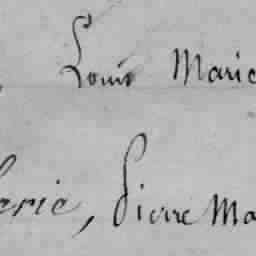 , Louis Marie
erie, Pierre Ma